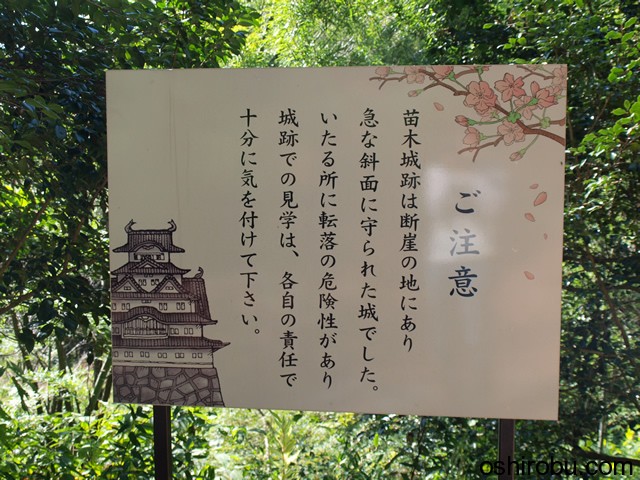 ご注意
苗木城跡は断崖の地にあり
急な斜面に守られた城でした。
いたる所に転落の危険性があり
城跡での見学は、各自の責任で
十分に気を付けて下さい。
oshirobu.com